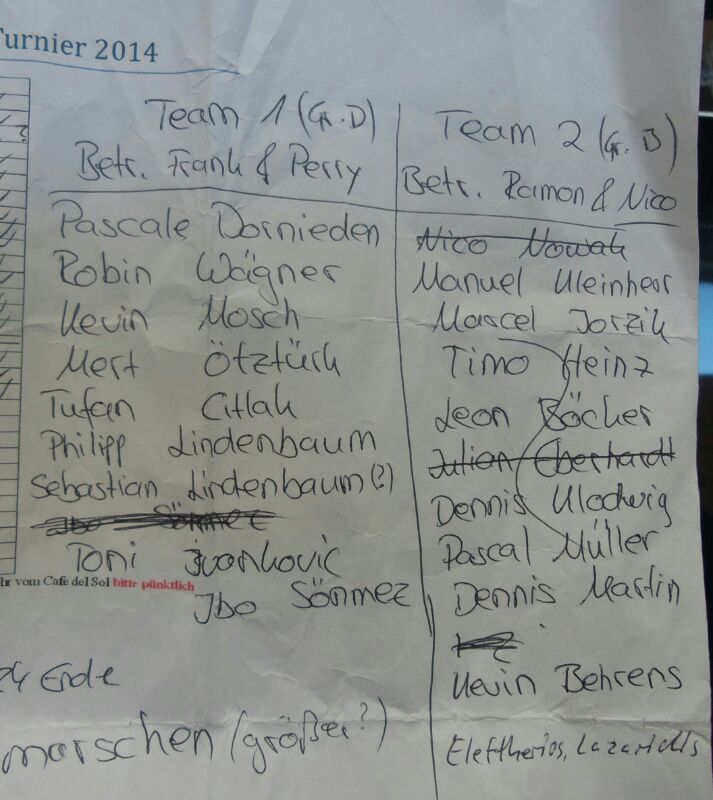 Turnier 2014
Team 1 (Gr. D)
Betr. Frank & Perry
Pascale Dornieden
Robin Wägner
Kevin Mosch
Mert Ötztürk
Tufan Citlak
Philipp Lindenbaum
Sebastian Lindenbaum (?)
Ibo Sönmez
Toni Ivankovic
hr vom Cafe del Sol bitte pünktlich
Ibo Sönmez
24 Ende
marschen (größer?)
Team 2 (Gr. B)
Betr. Ramon & Nico
Nico Nowak
Manuel Kleinheor
Marcel Jorzik
Timo Heinz
Leon Böcher
Julian Eberhardt
Dennis Klodwig
Pascal Müller
Dennis Martin
Kevin Behrens
Eleftherios, Lazaridis